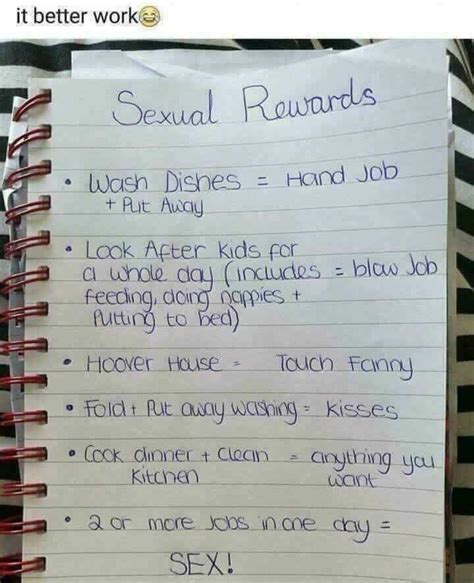 it better work😂
Sexual Rewards
• Wash Dishes = Hand Job
+ Put Away
• Look After kids for
a whole day (includes = blow Job
feeding, doing nappies +
Putting to bed)
• Hoover House = Touch Fanny
• Fold + Put away washing = kisses
• Cook dinner + clean = anything you
Kitchen want
• 2 or more Jobs in one day =
SEX!